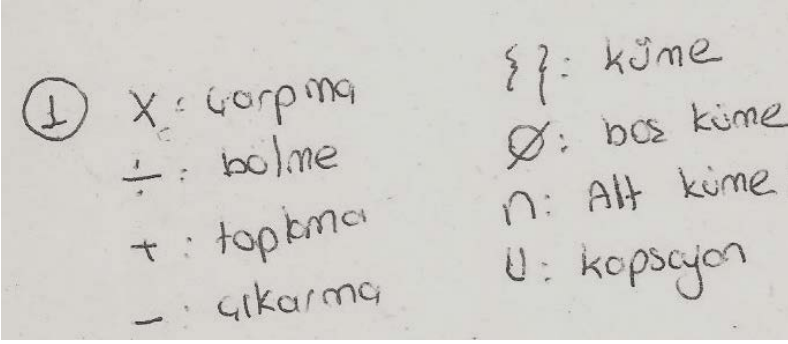 ① X : çarpma
÷ : bölme
+ : toplama
− : çıkarma
{ } : küme
Ø : boş küme
∩ : Alt küme
U : kapsayan